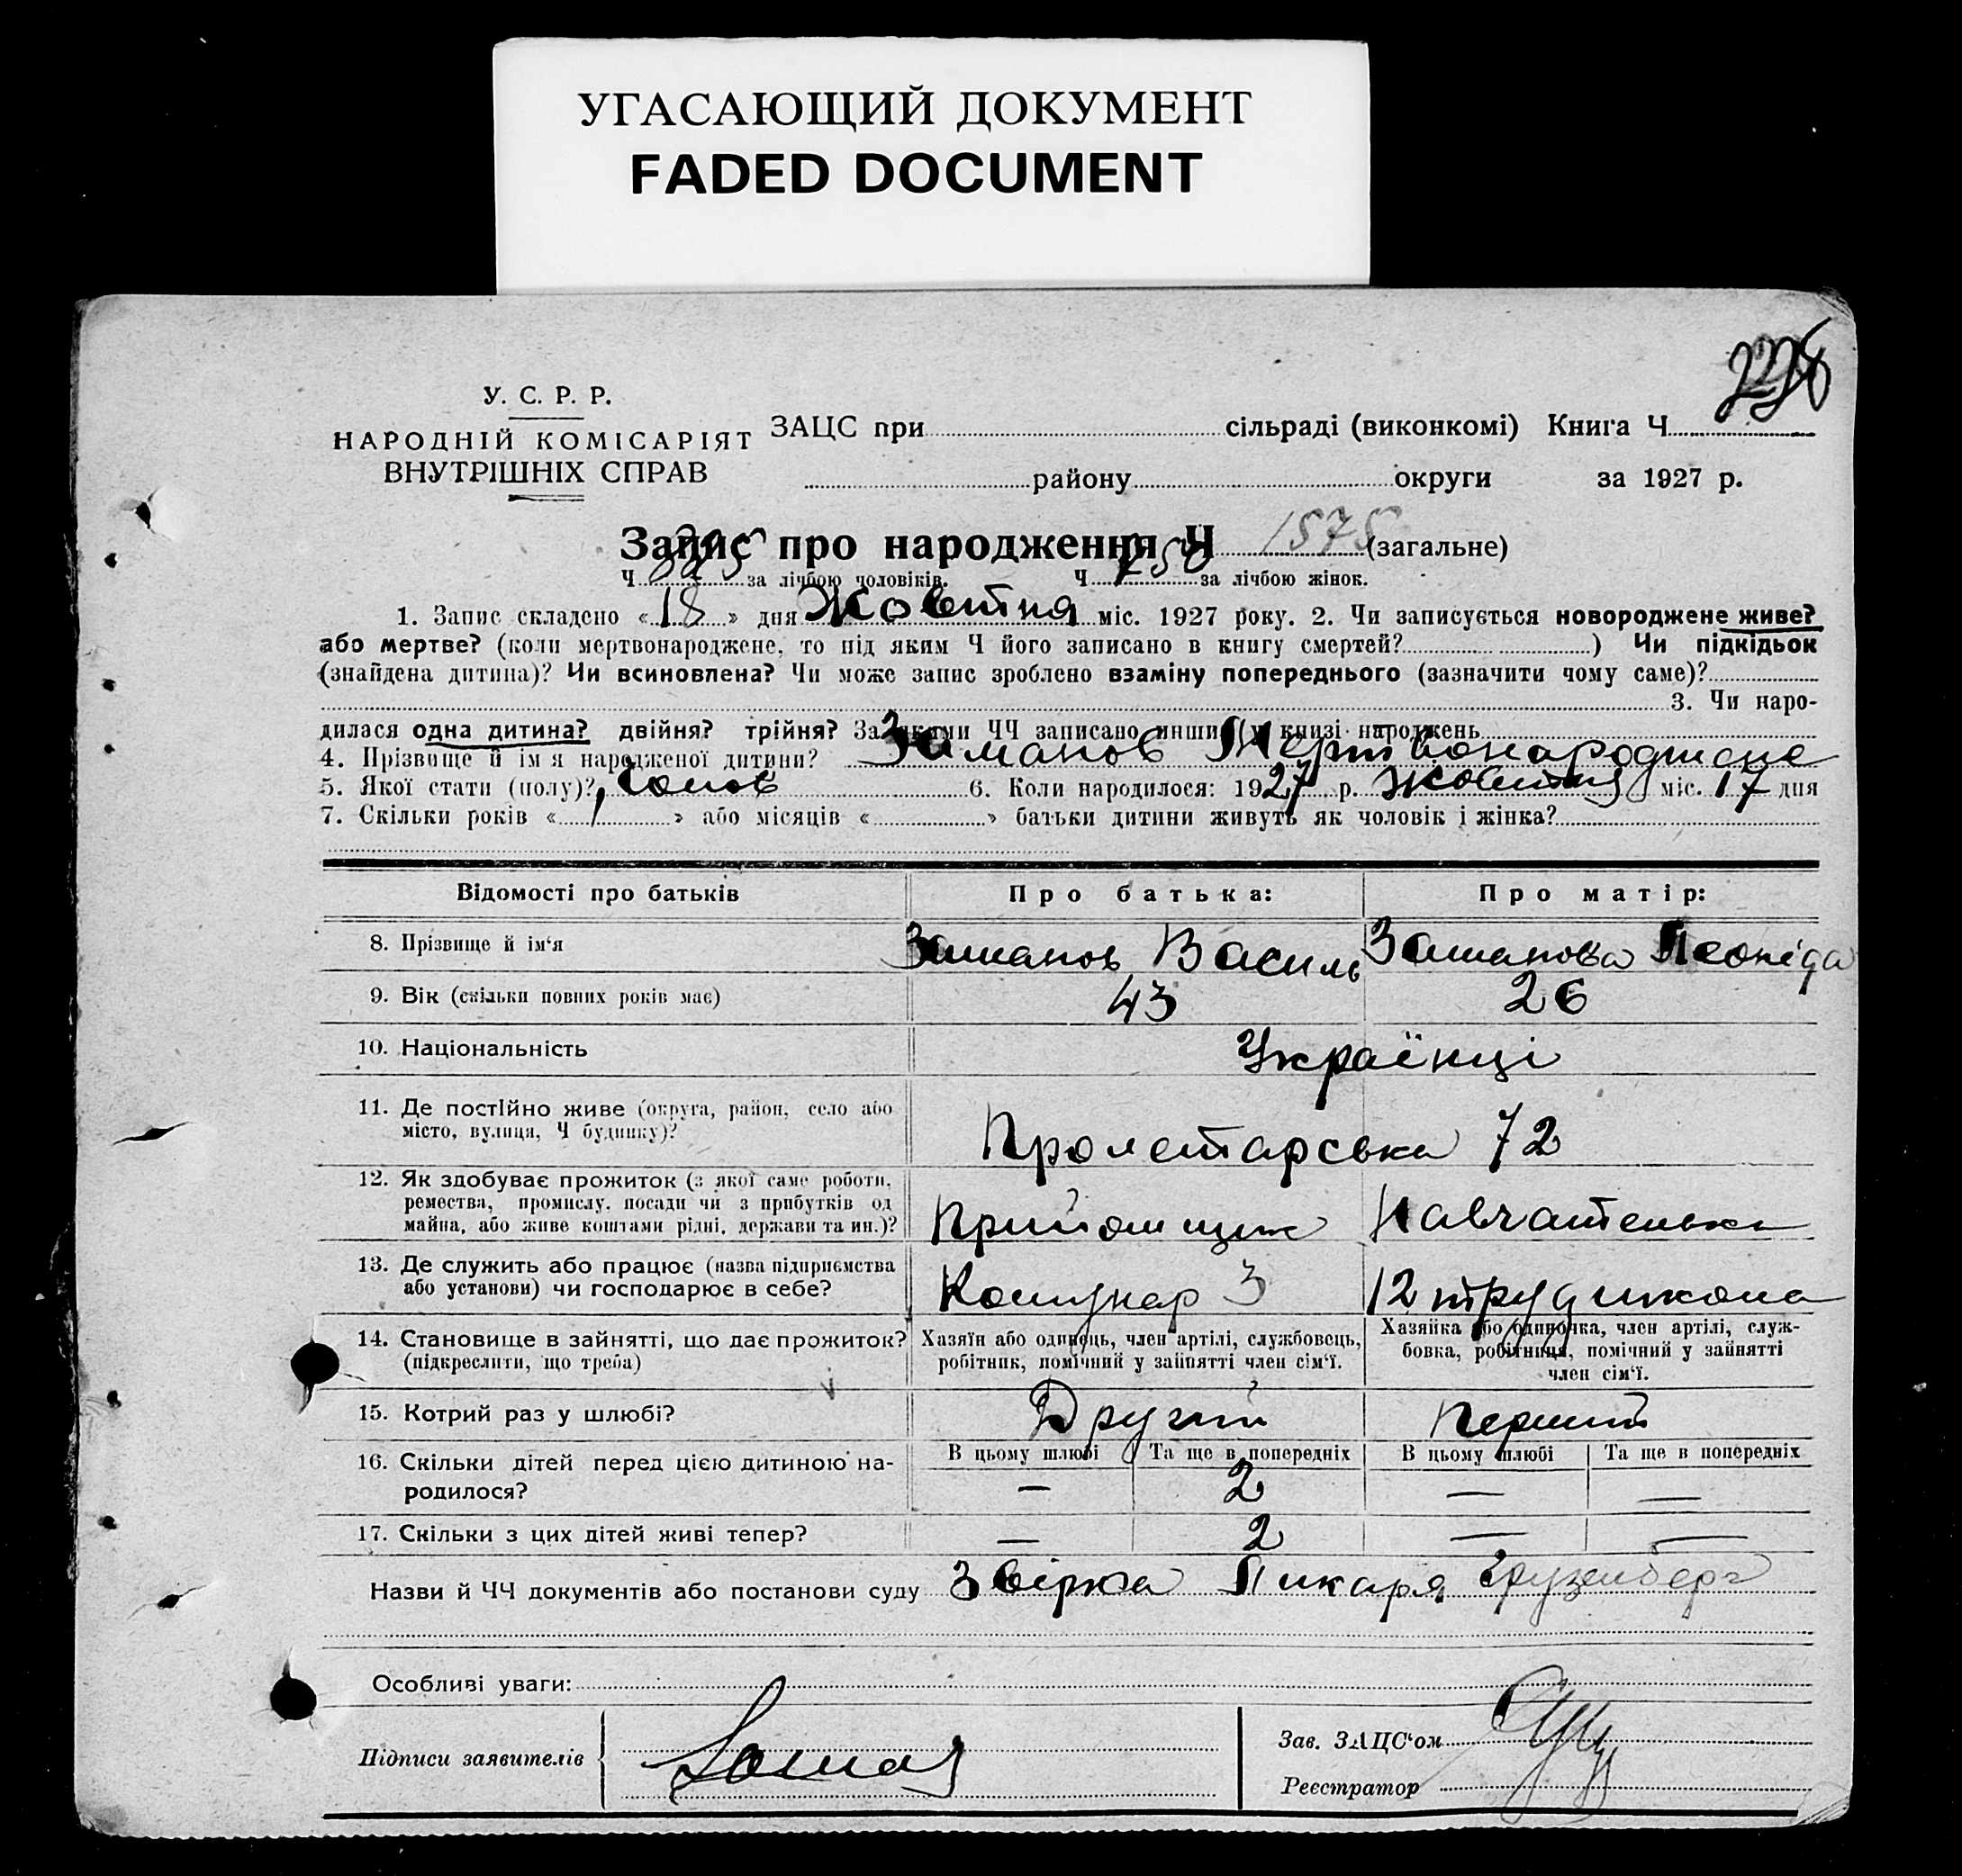 УГАСАЮЩИЙ ДОКУМЕНТ
FADED DOCUMENT
228
У. С. Р. Р.
НАРОДНІЙ КОМІСАРІЯТ
ВНУТРІШНІХ СПРАВ
ЗАЦС при сільраді (виконкомі) Книга Ч
району округи за 1927 р.
Запис про народження Ч 1575 (загальне)
Ч 825 за лічбою чоловіків. Ч 750 за лічбою жінок.
1. Запис складено «18» дня Жовтня міс. 1927 року. 2. Чи записується новороджене живе?
або мертве? (коли мертвонароджене, то під яким Ч його записано в книгу смертей? ) Чи підкідьок
(знайдена дитина)? Чи всиновлена? Чи може запис зроблено взаміну попереднього (зазначити чому саме)?
3. Чи наро-
дилася одна дитина? двійня? трійня? За якими ЧЧ записано инших (у книзі народжень
4. Прізвище й ім'я народженої дитини? Заманов Мертвонароджене
5. Якої стати (полу)? чолов 6. Коли народилося: 1927 р. Жовтня міс. 17 дня
7. Скільки років « » або місяців « » батьки дитини живуть як чоловік і жінка?
Відомості про батьків Про батька: Про матір:
8. Прізвище й ім'я Заманов Василь Заманова Леоніда
9. Вік (скільки повних років має) 43 26
10. Національність Українці
11. Де постійно живе (округа, район, село або
місто, вулиця, Ч будинку)? Пролетарська 72
12. Як здобуває прожиток (з якої саме роботи,
ремества, промислу, посади чи з прибутків од
майна, або живе коштами рідні, держави та ин.)? Прийомщик Навчателька
13. Де служить або працює (назва підприємства
або установи) чи господарює в себе? Комунар 3 12 трудшкола
14. Становище в зайнятті, що дає прожиток?
(підкреслити, що треба)
Хазяїн або одинець, член артілі, службовець,
робітник, помічний у зайнятті член сім'ї.
Хазяйка або одиночка, член артілі, служ-
бовка, робітниця, помічний у зайнятті
член сім'ї.
15. Котрий раз у шлюбі? Другий Перший
В цьому шлюбі Та ще в попередніх В цьому шлюбі Та ще в попередніх
16. Скільки дітей перед цією дитиною на-
родилося? — 2 — —
17. Скільки з цих дітей живі тепер? — 2 — —
Назви й ЧЧ документів або постанови суду Звірка Ликаря Грузенберг
Особливі уваги:
Підписи заявителів
Зав. ЗАЦС'ом
Реєстратор